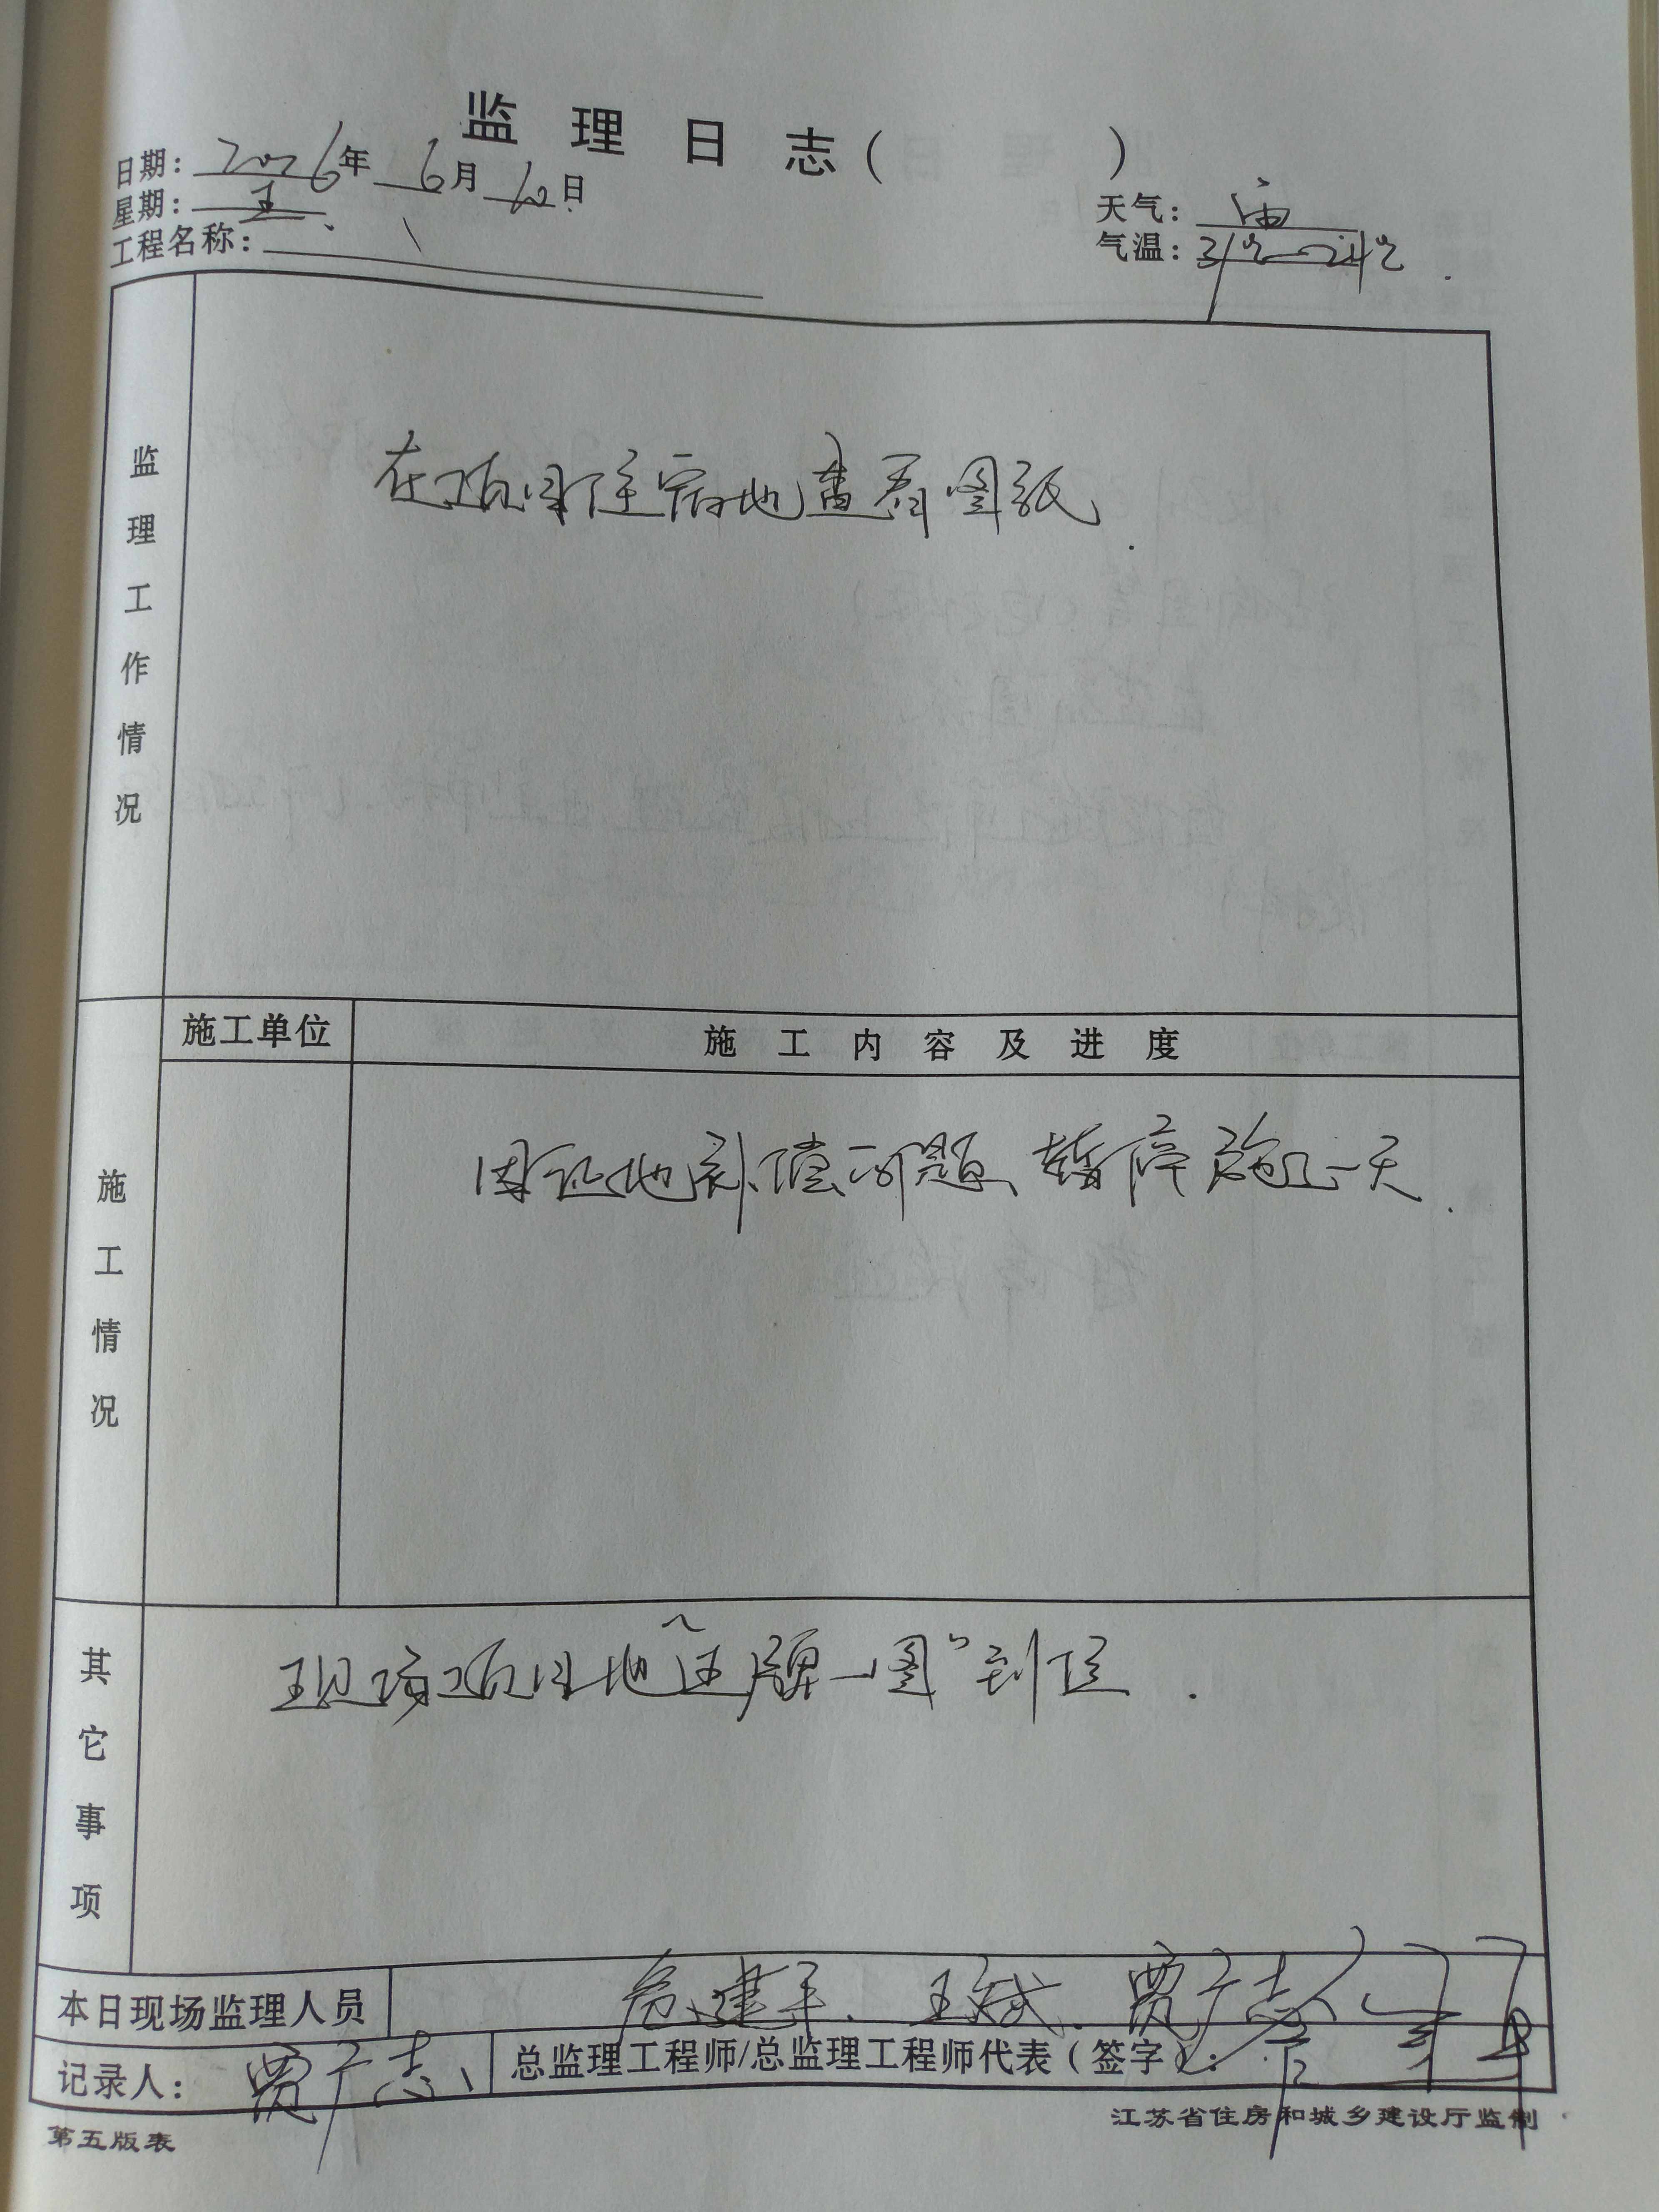 监理日志（ ）
日期：2026年6月10日
星期：五
天气：
工程名称：
气温：31℃—24℃
监理工作情况
在项目住宿地查看图纸.
施工单位
施工内容及进度
施工情况
因征地补偿问题、暂停施工一天.
其它事项
现场项目地“五牌一图”到位.
本日现场监理人员
建平、王斌、贾广志
记录人：贾广志
总监理工程师/总监理工程师代表（签字）：
江苏省住房和城乡建设厅监制
第五版表